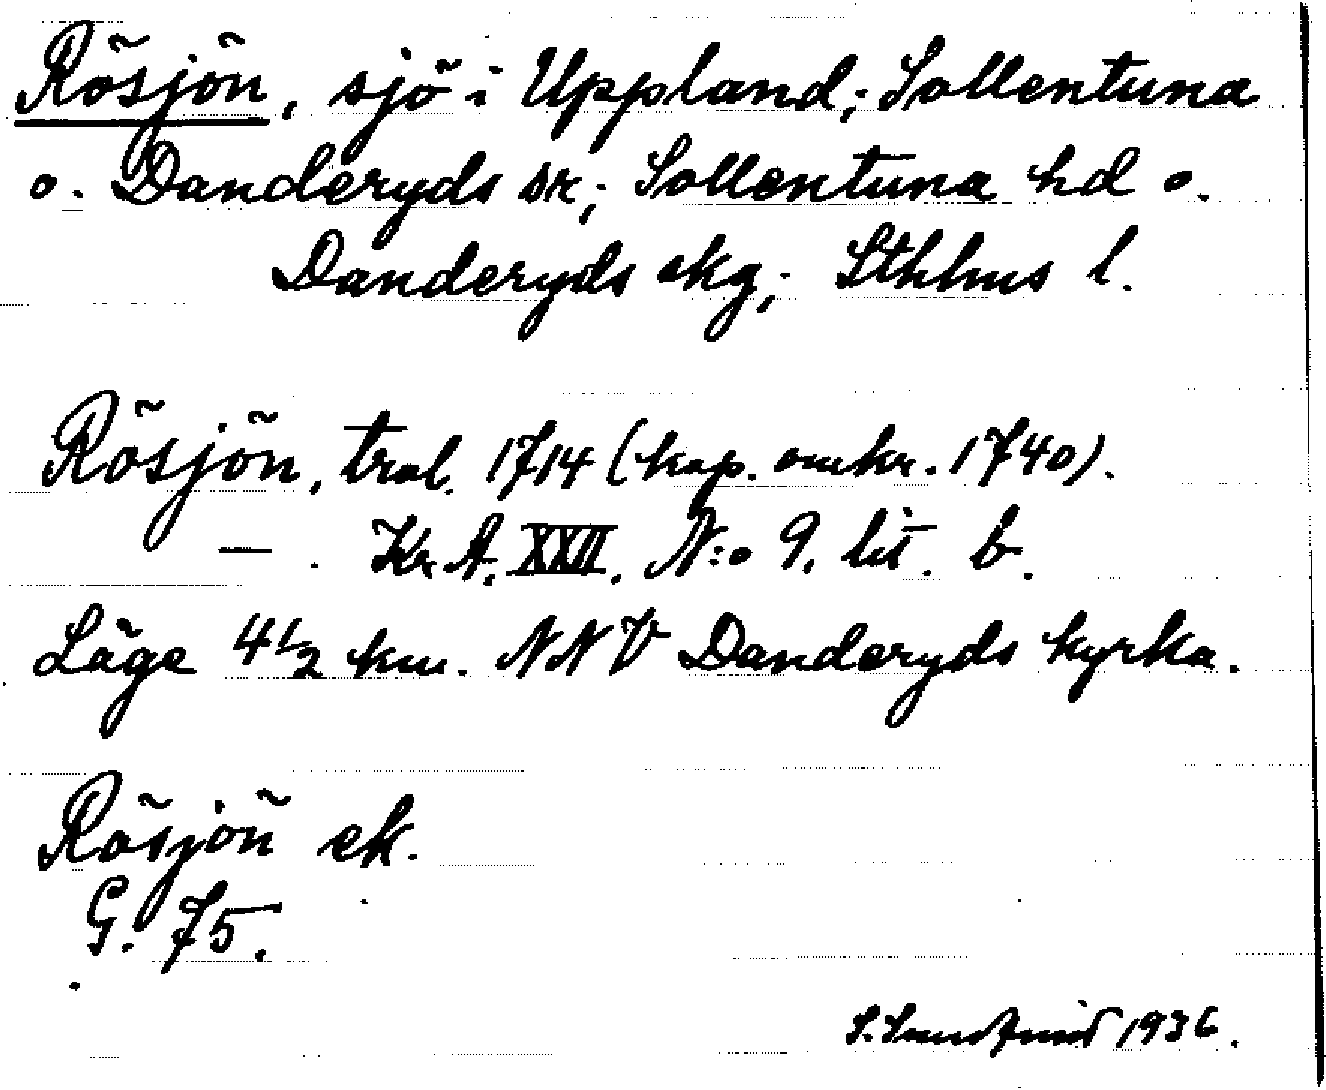 Rösjön, sjö i Uppland; Sollentuna
o. Danderyds sk; Sollentuna hd o.
Danderyds skg; Sthlms l.
Rösjön, tral. 1714 (kop. omkr. 1740).
— . Kr. A. XXII. N:o 9. lit. b.
Läge 4 1/2 km. NNV Danderyds kyrka.
Rösjön ek.
G. 75.
S. 1936.